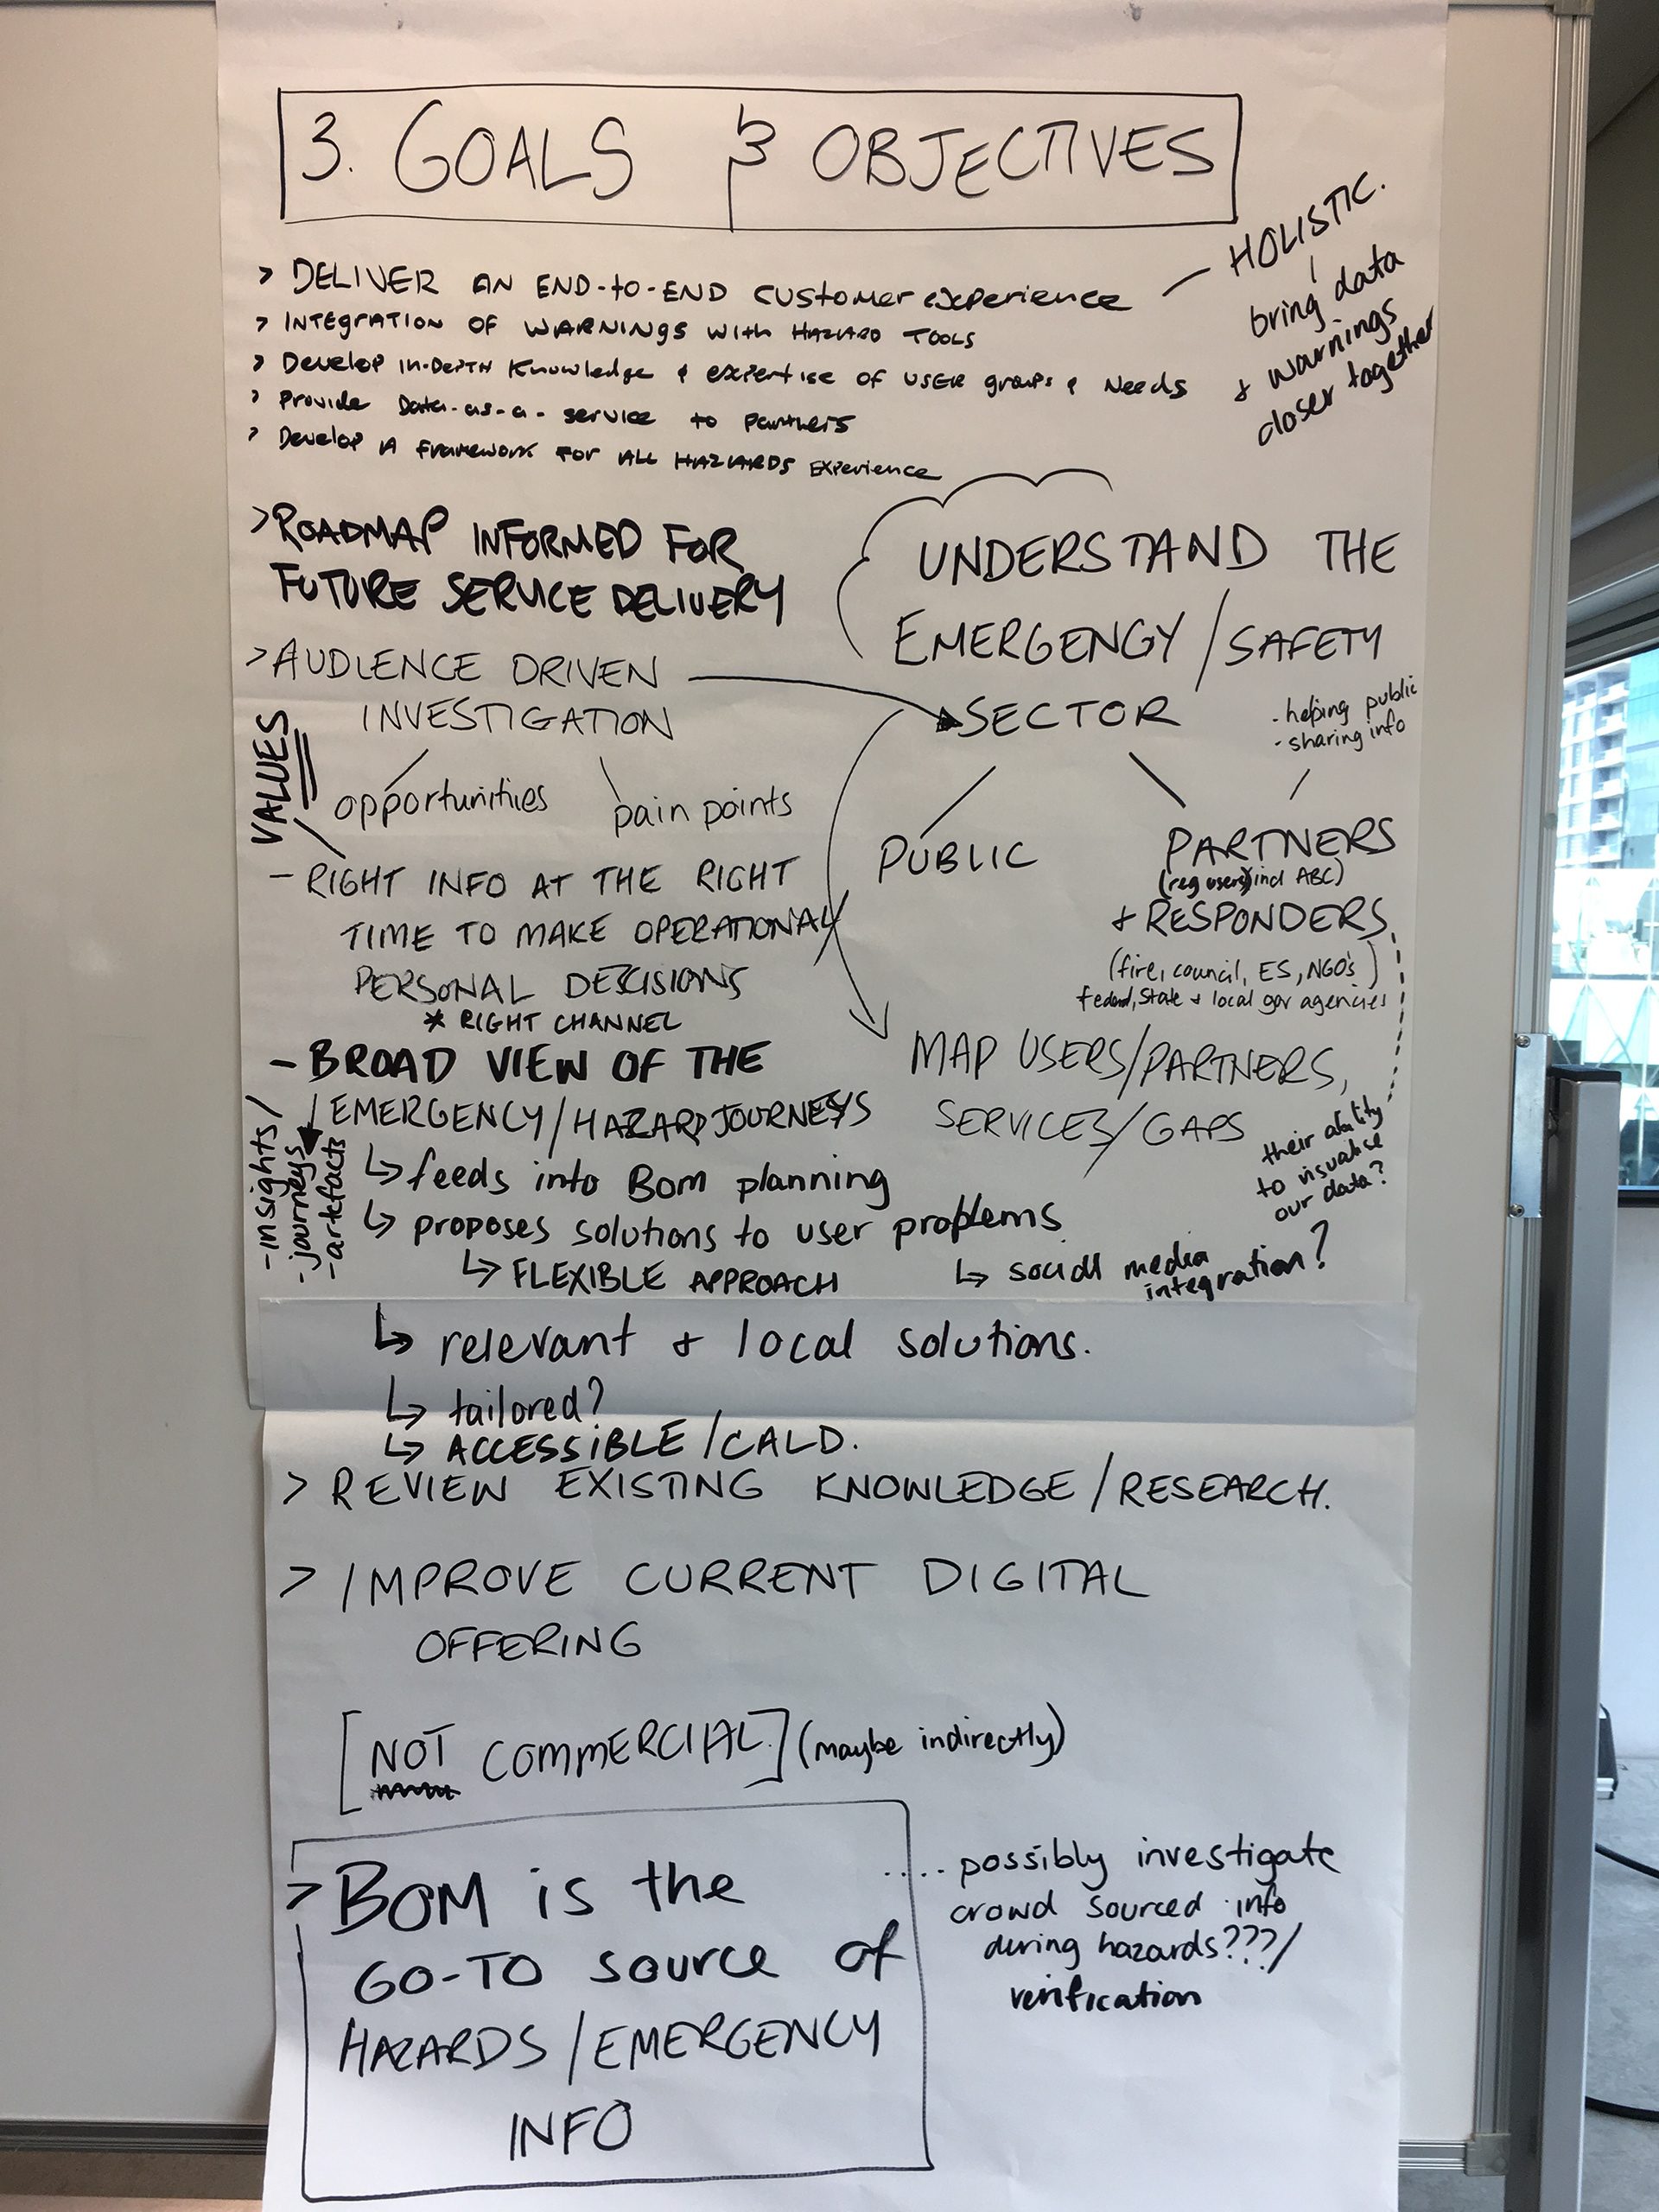 3. GOALS & OBJECTIVES
> DELIVER AN END-to-END customer experience
— HOLISTIC.
bring data
+ warnings
closer together
> INTEgRATION OF WARNINgS WITH HAZARD TOOLS
> Develop IN-DEPTH Knowledge & expertise of USER groups & Needs
> Provide Data-as-a-service to Partners
> Develop A framework FOR ALL HAZARDS Experience
> ROADMAP INFORMED FOR
FUTURE SERVICE DELIVERY
> AUDIENCE DRIVEN
INVESTIGATION
opportunities
pain points
UNDERSTAND THE
EMERGENCY / SAFETY
SECTOR
- helping public
- sharing info
PUBLIC
PARTNERS
(reg users) incl ABC)
+ RESPONDERS
(fire, council, ES, NGO's)
federal, State + local gov agencies
MAP USERS/PARTNERS,
SERVICES/GAPS
their ability
to visualise
our data?
VALUES
- RIGHT INFO AT THE RIGHT
TIME TO MAKE OPERATIONAL/
PERSONAL DECISIONS
* RIGHT CHANNEL
- BROAD VIEW OF THE
EMERGENCY/HAZARD JOURNEYS
- insights/
- journeys
- artefacts
↳ feeds into Bom planning
↳ proposes solutions to user problems
↳ FLEXIBLE APPROACH
↳ social media
integration?
↳ relevant + local solutions.
↳ tailored?
↳ ACCESSIBLE /CALD.
> REVIEW EXISTING KNOWLEDGE/RESEARCH.
> IMPROVE CURRENT DIGITAL
OFFERING
[NOT COMMERCIAL.] (maybe indirectly)
> BOM is the
GO-TO source of
HAZARDS/EMERGENCY
INFO
..... possibly investigate
crowd sourced info
during hazards???/
verification